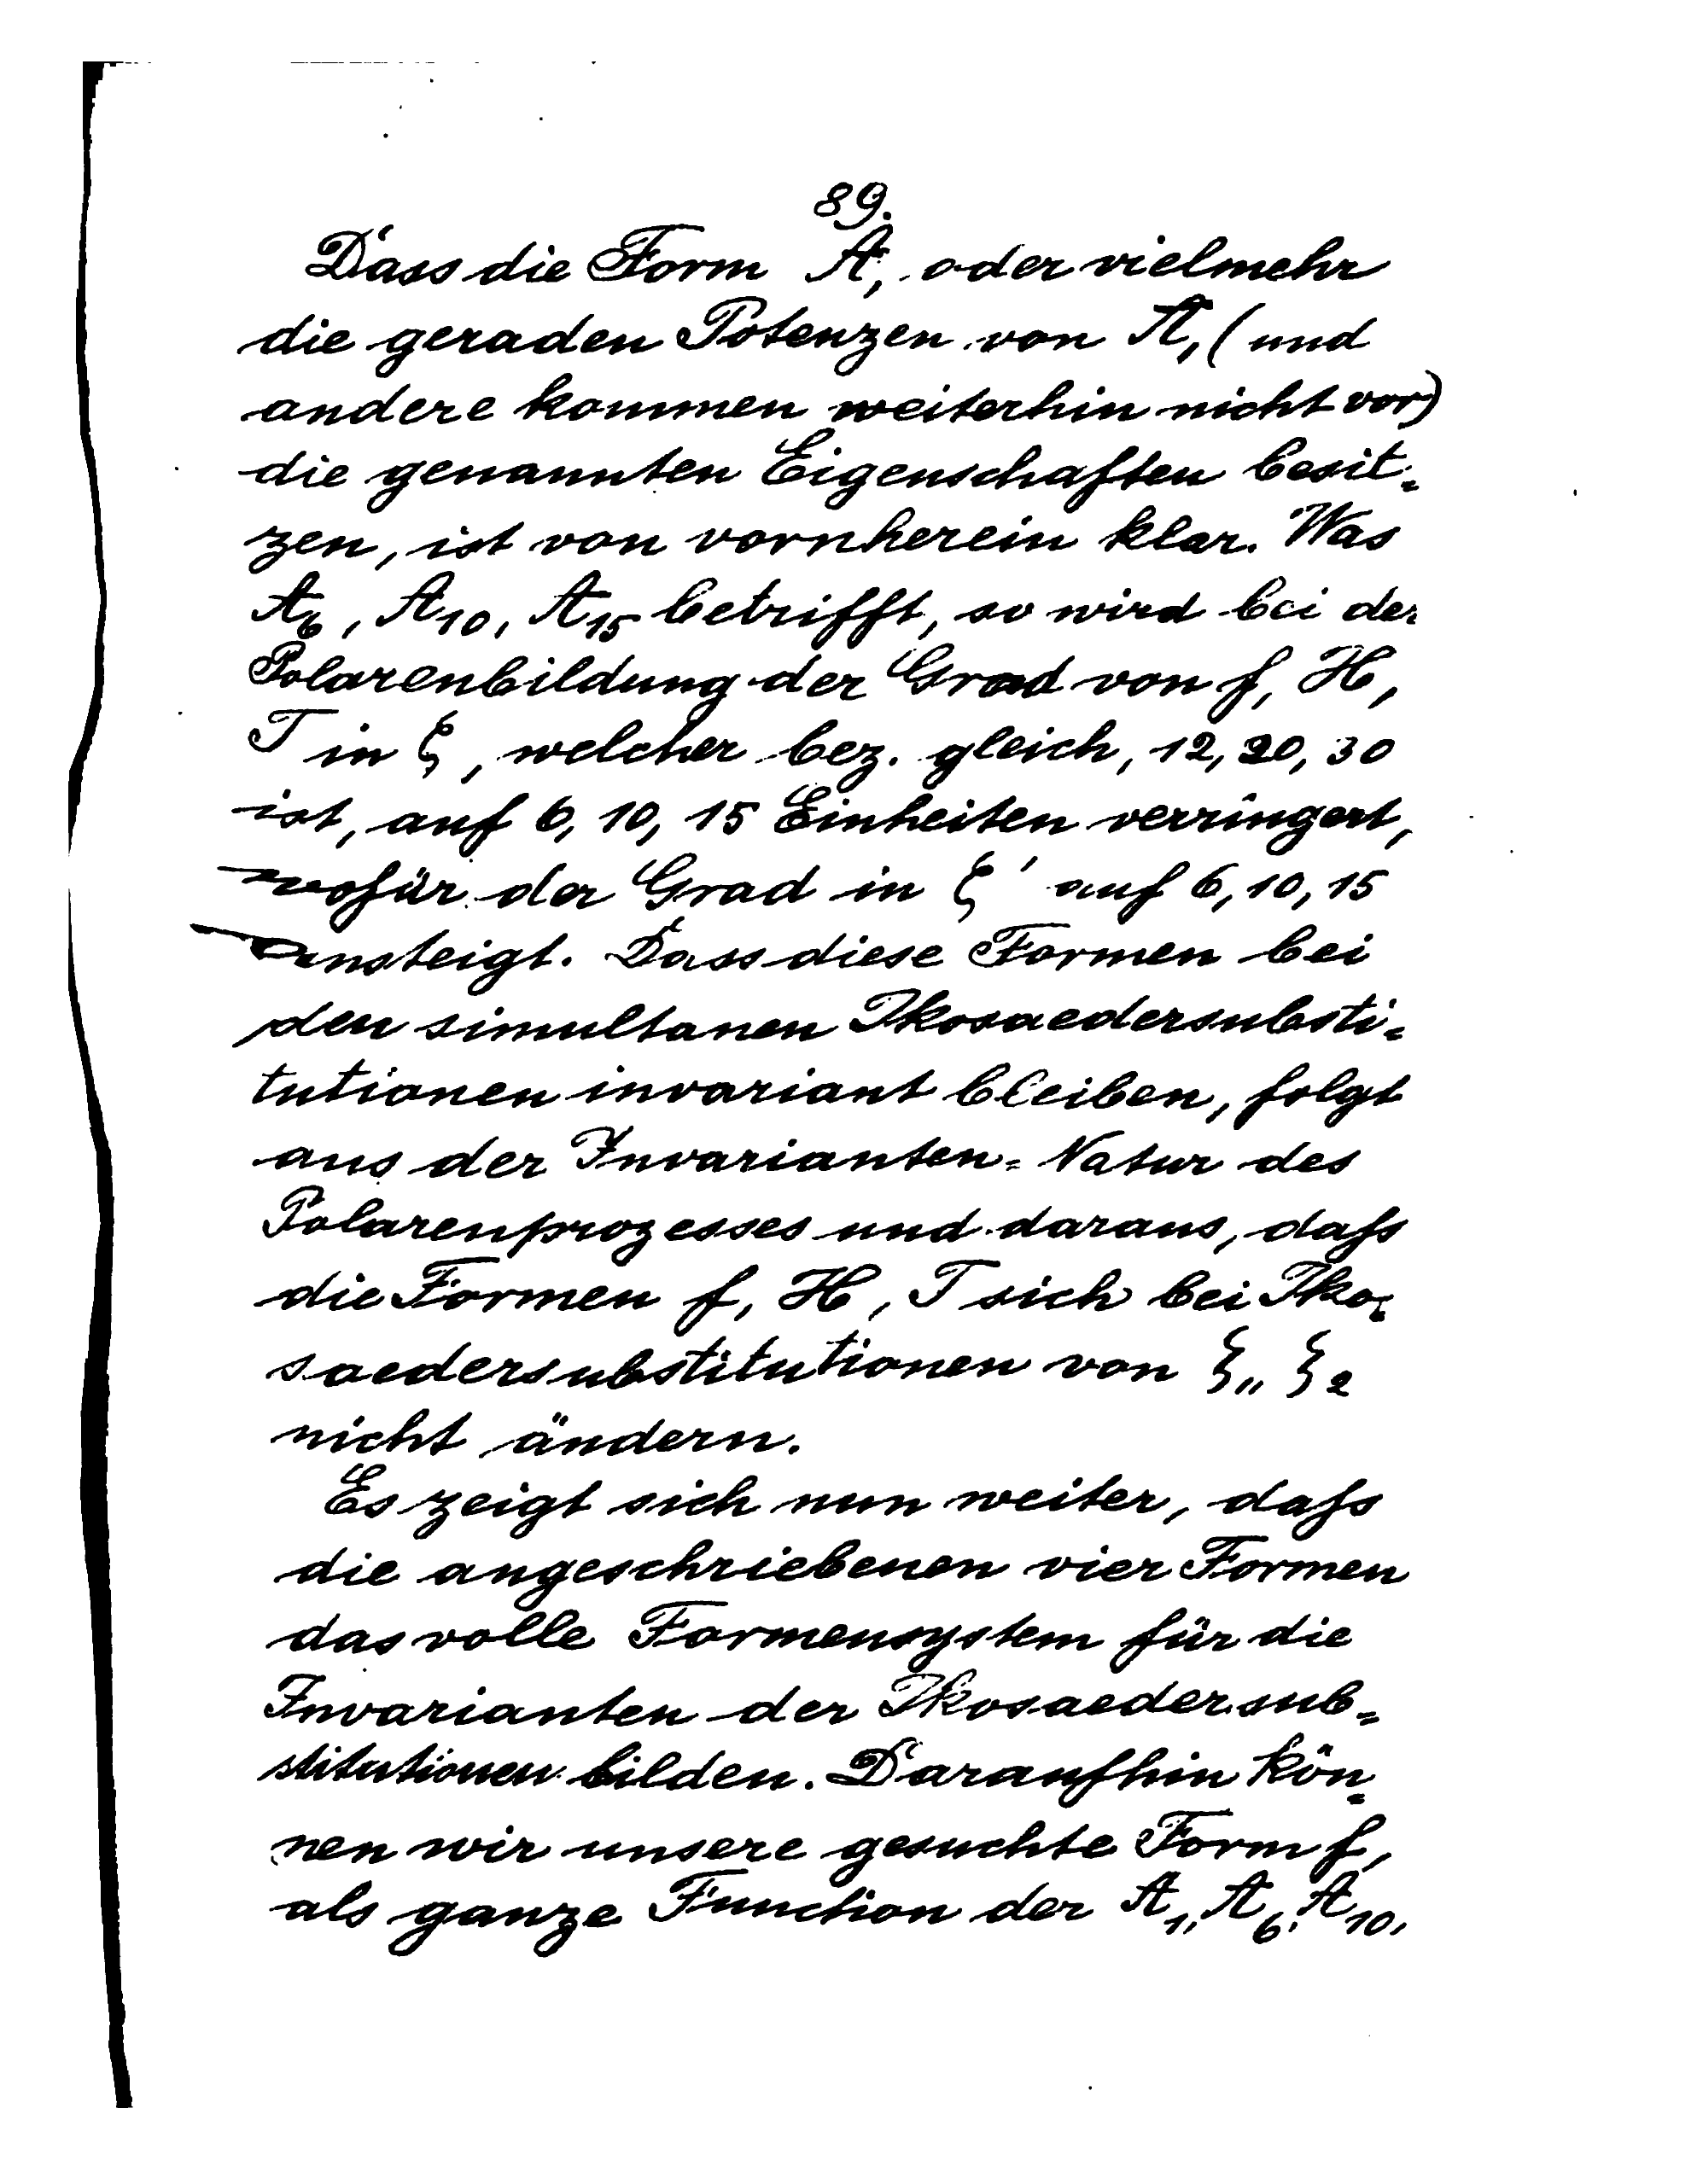 89.
Dass die Form A₁, oder vielmehr
die geraden Potenzen von A₁, (und
andere kommen weiterhin nicht vor)
die genannten Eigenschaften besit-
zen, ist von vornherein klar. Was
A₆, A₁₀, A₁₅ betrifft, so wird bei der
Polarenbildung der Grad von f, H,
T in ζ, welcher bez. gleich, 12, 20, 30
ist, auf 6, 10, 15 Einheiten verringert,
wofür der Grad in ζ' auf 6, 10, 15
ansteigt. Dass diese Formen bei
den simultanen Ikosaedersubsti-
tutionen invariant bleiben, folgt
aus der Invarianten-Natur des
Polarenprozesses und daraus, daſs
die Formen f, H, T sich bei Iko-
saedersubstitutionen von ζ₁, ζ₂
nicht ändern.
Es zeigt sich nun weiter, daſs
die angeschriebenen vier Formen
das volle Formensystem für die
Invarianten der Ikosaedersub-
stitutionen bilden. Daraufhin kön-
nen wir unsere gesuchte Form f,
als ganze Function der A₁, A₆, A₁₀,